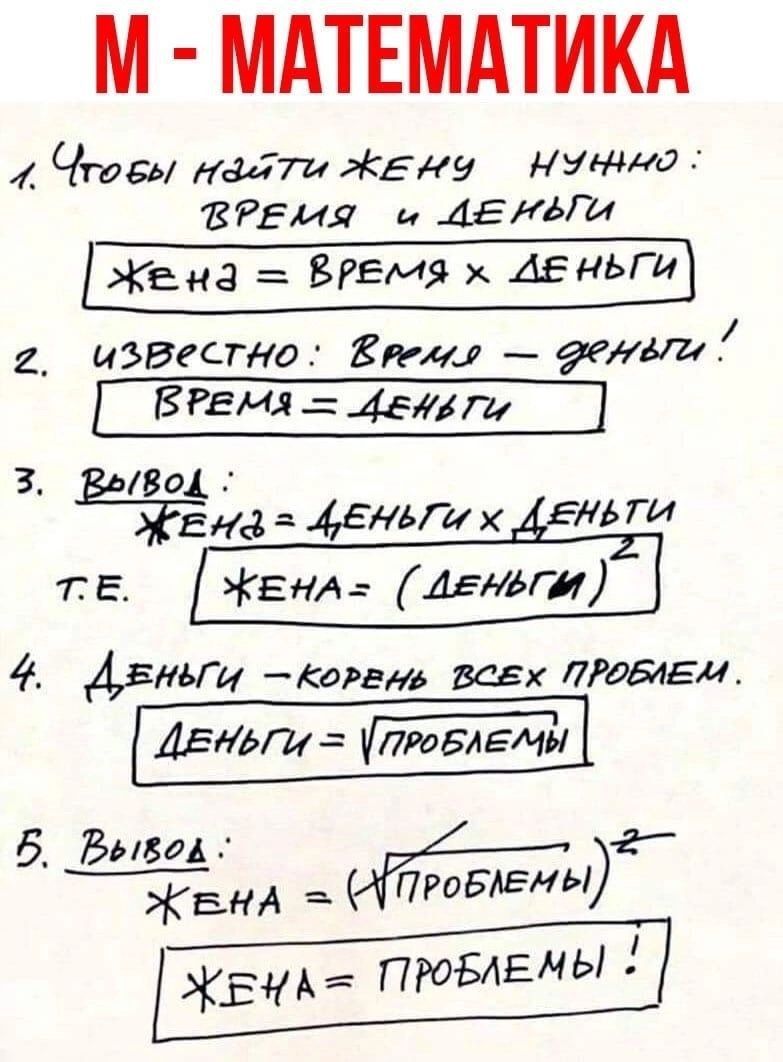 М - МАТЕМАТИКА
1. Чтобы найти ЖЕНУ НУЖНО:
ВРЕМЯ и ДЕНЬГИ
ЖЕНа = ВРЕМЯ x ДЕНЬГИ
2. ИЗВЕСТНО: Время – деньги!
ВРЕМЯ = ДЕНЬГИ
3. ВЫВОД:
ЖЕНа = ДЕНЬГИ x ДЕНЬГИ
Т.Е. ЖЕНА = (ДЕНЬГИ)²
4. ДЕНЬГИ – КОРЕНЬ ВСЕХ ПРОБЛЕМ.
ДЕНЬГИ = √ПРОБЛЕМЫ
5. ВЫВОД:
ЖЕНА = (√ПРОБЛЕМЫ)²
ЖЕНА = ПРОБЛЕМЫ!